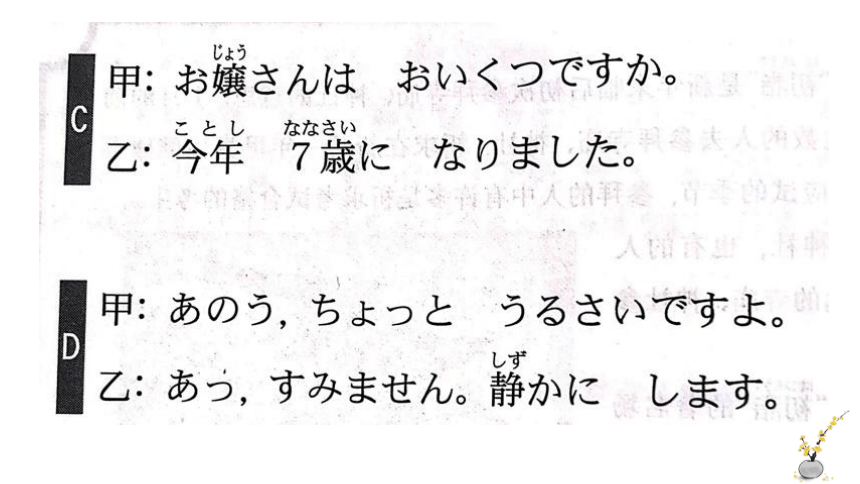 C
甲: お嬢さんは おいくつですか。
乙: 今年 7歳に なりました。
D
甲: あのう, ちょっと うるさいですよ。
乙: あっ, すみません。静かに します。